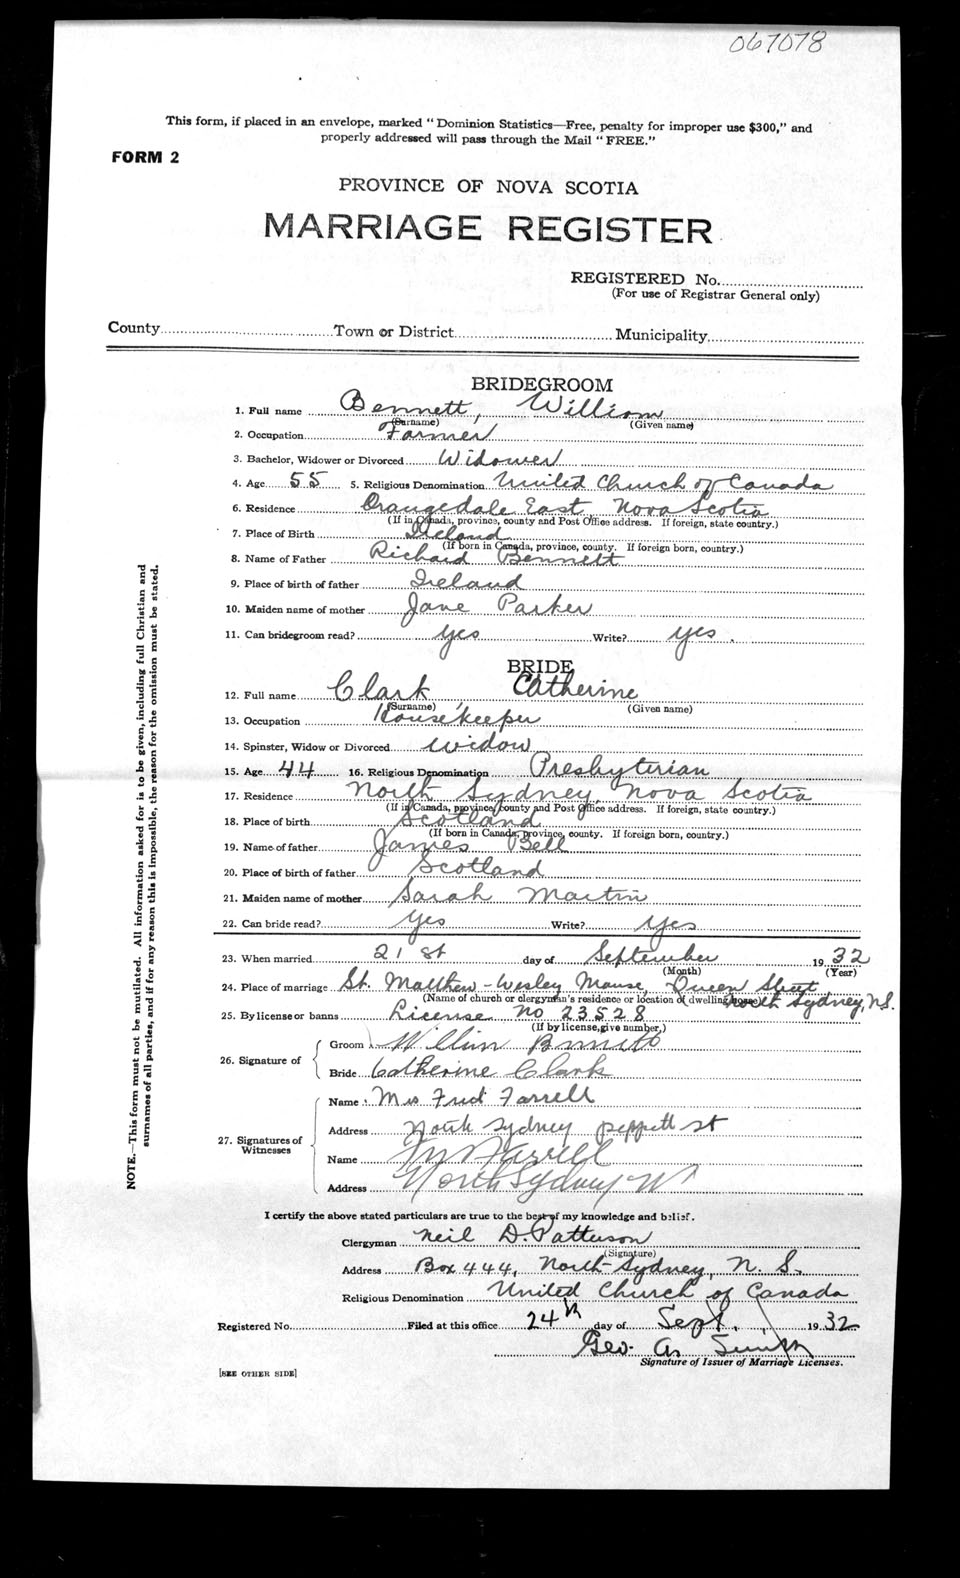 067078
This form, if placed in an envelope, marked "Dominion Statistics—Free, penalty for improper use $300," and
properly addressed will pass through the Mail "FREE."
FORM 2
PROVINCE OF NOVA SCOTIA
MARRIAGE REGISTER
REGISTERED No.
(For use of Registrar General only)
County Town or District Municipality
BRIDEGROOM
1. Full name Bennett, William
(Surname) (Given name)
2. Occupation Farmer
3. Bachelor, Widower or Divorced Widower
4. Age 55 5. Religious Denomination United Church of Canada
6. Residence Orangedale East, Nova Scotia
(If in Canada, province, county and Post Office address. If foreign, state country.)
7. Place of Birth Ireland
(If born in Canada, province, county. If foreign born, country.)
8. Name of Father Richard Bennett
9. Place of birth of father Ireland
10. Maiden name of mother Jane Parker
11. Can bridegroom read? yes Write? yes.
BRIDE
12. Full name Clark, Catherine
(Surname) (Given name)
13. Occupation Housekeeper
14. Spinster, Widow or Divorced widow
15. Age 44 16. Religious Denomination Presbyterian
17. Residence North Sydney, Nova Scotia
(If in Canada, province, county and Post Office address. If foreign, state country.)
18. Place of birth Scotland
(If born in Canada, province, county. If foreign born, country.)
19. Name of father James Bell
20. Place of birth of father Scotland
21. Maiden name of mother Sarah Martin
22. Can bride read? yes Write? yes
23. When married 21st day of September 1932
(Month) (Year)
24. Place of marriage St. Matthew-Wesley Manse, Queen Street
(Name of church or clergyman's residence or location of dwelling house) North Sydney, N.S.
25. By license or banns License no 23528
(If by license, give number.)
26. Signature of
Groom William Bennett
Bride Catherine Clark
27. Signatures of Witnesses
Name Mrs Fred Farrell
Address North Sydney Peppett St
Name Farrell
Address North Sydney NS
I certify the above stated particulars are true to the best of my knowledge and belief.
Clergyman Neil D. Patterson
(Signature)
Address Box 444, North Sydney, N. S.
Religious Denomination United Church of Canada
Registered No. Filed at this office 24th day of Sept. 1932
Geo. A. Smith
Signature of Issuer of Marriage Licenses.
[SEE OTHER SIDE]
NOTE.—This form must not be mutilated. All information asked for is to be given, including full Christian and
surnames of all parties, and if for any reason this is impossible, the reason for the omission must be stated.